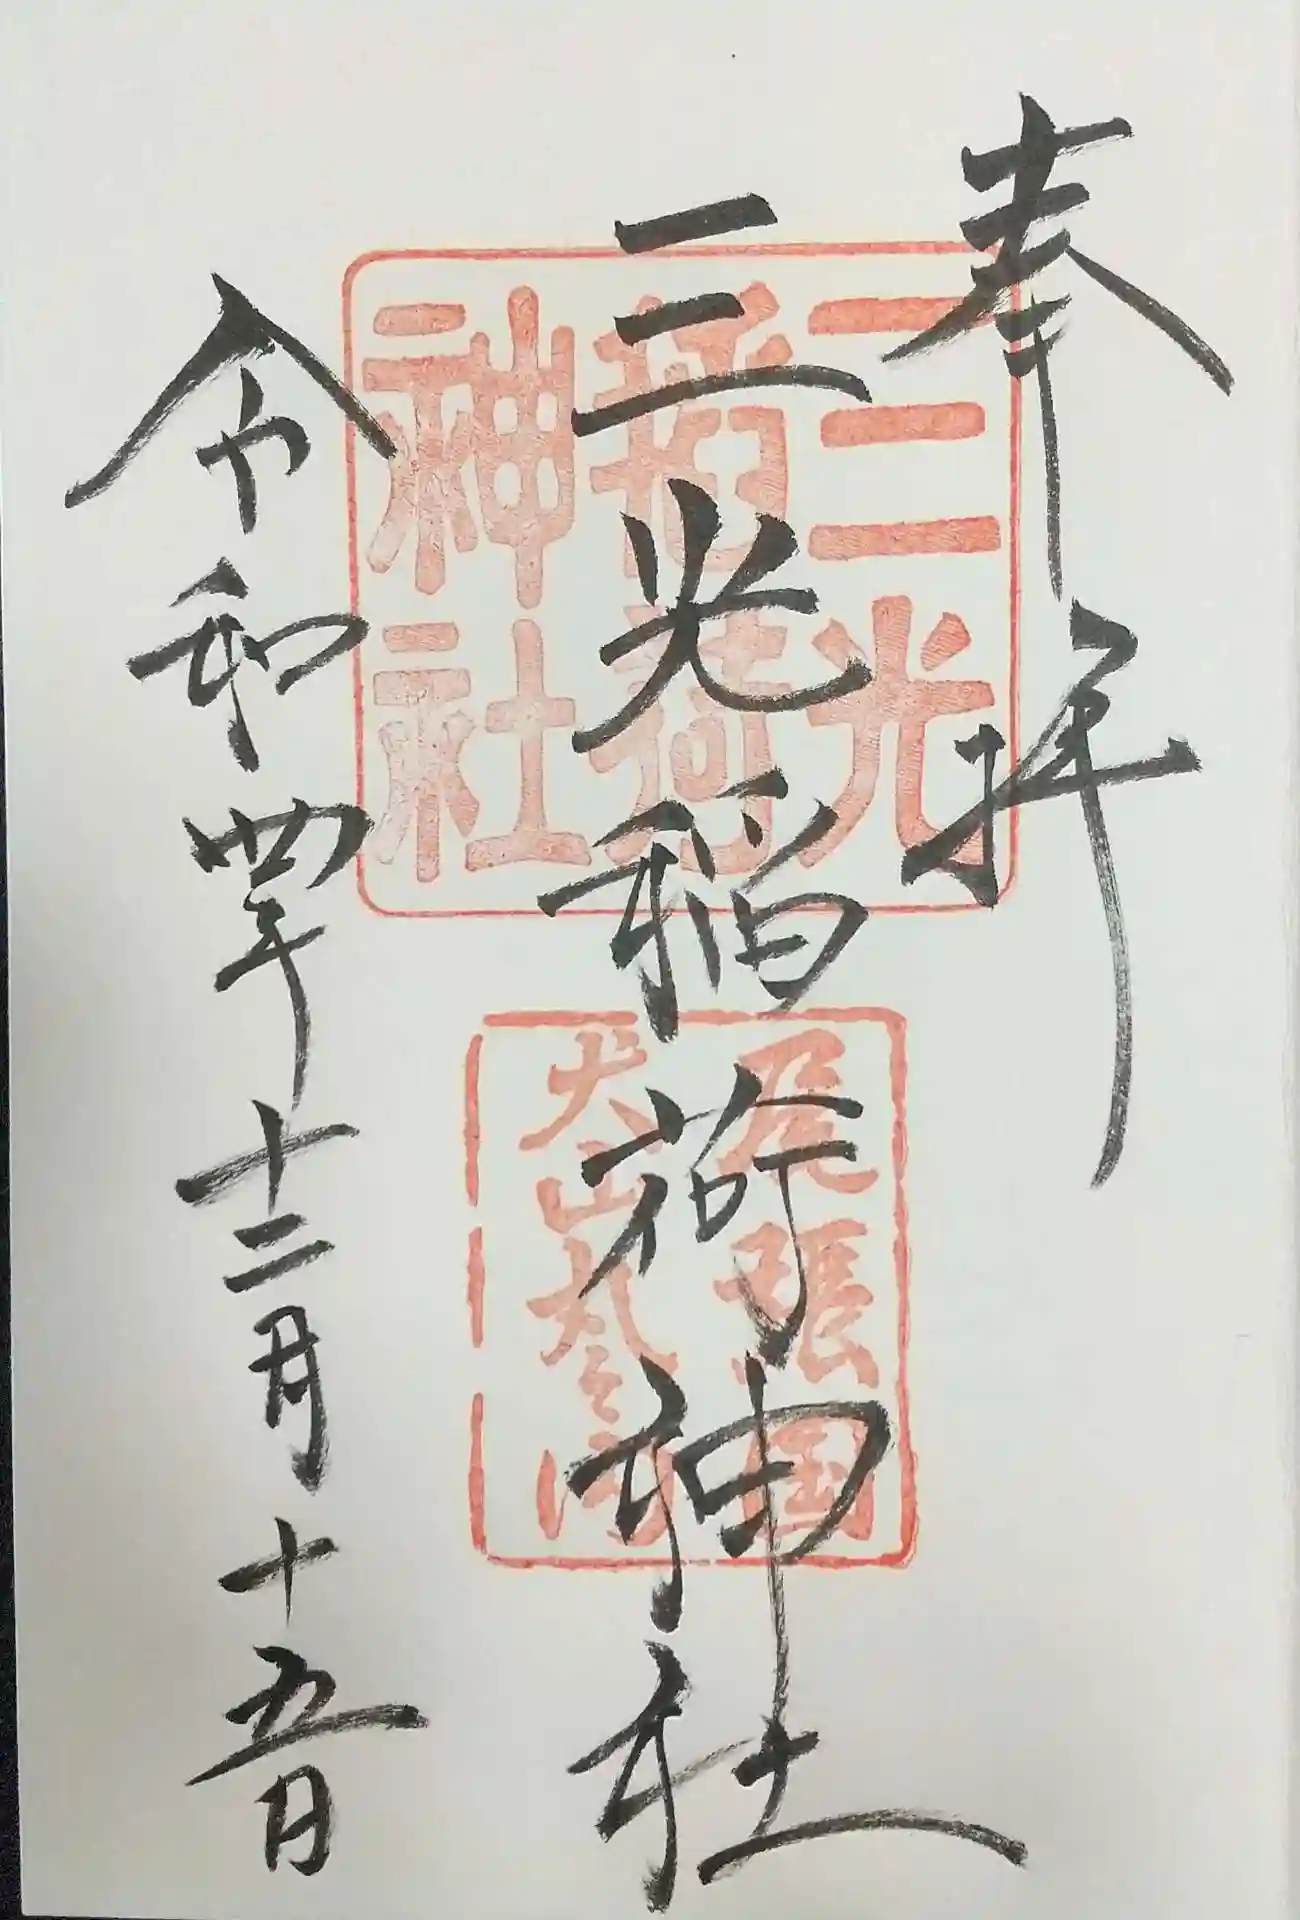 奉拝
三光稲荷神社
令和四年十二月十五日
三光
稲荷
神社
尾張国
犬山丸之内